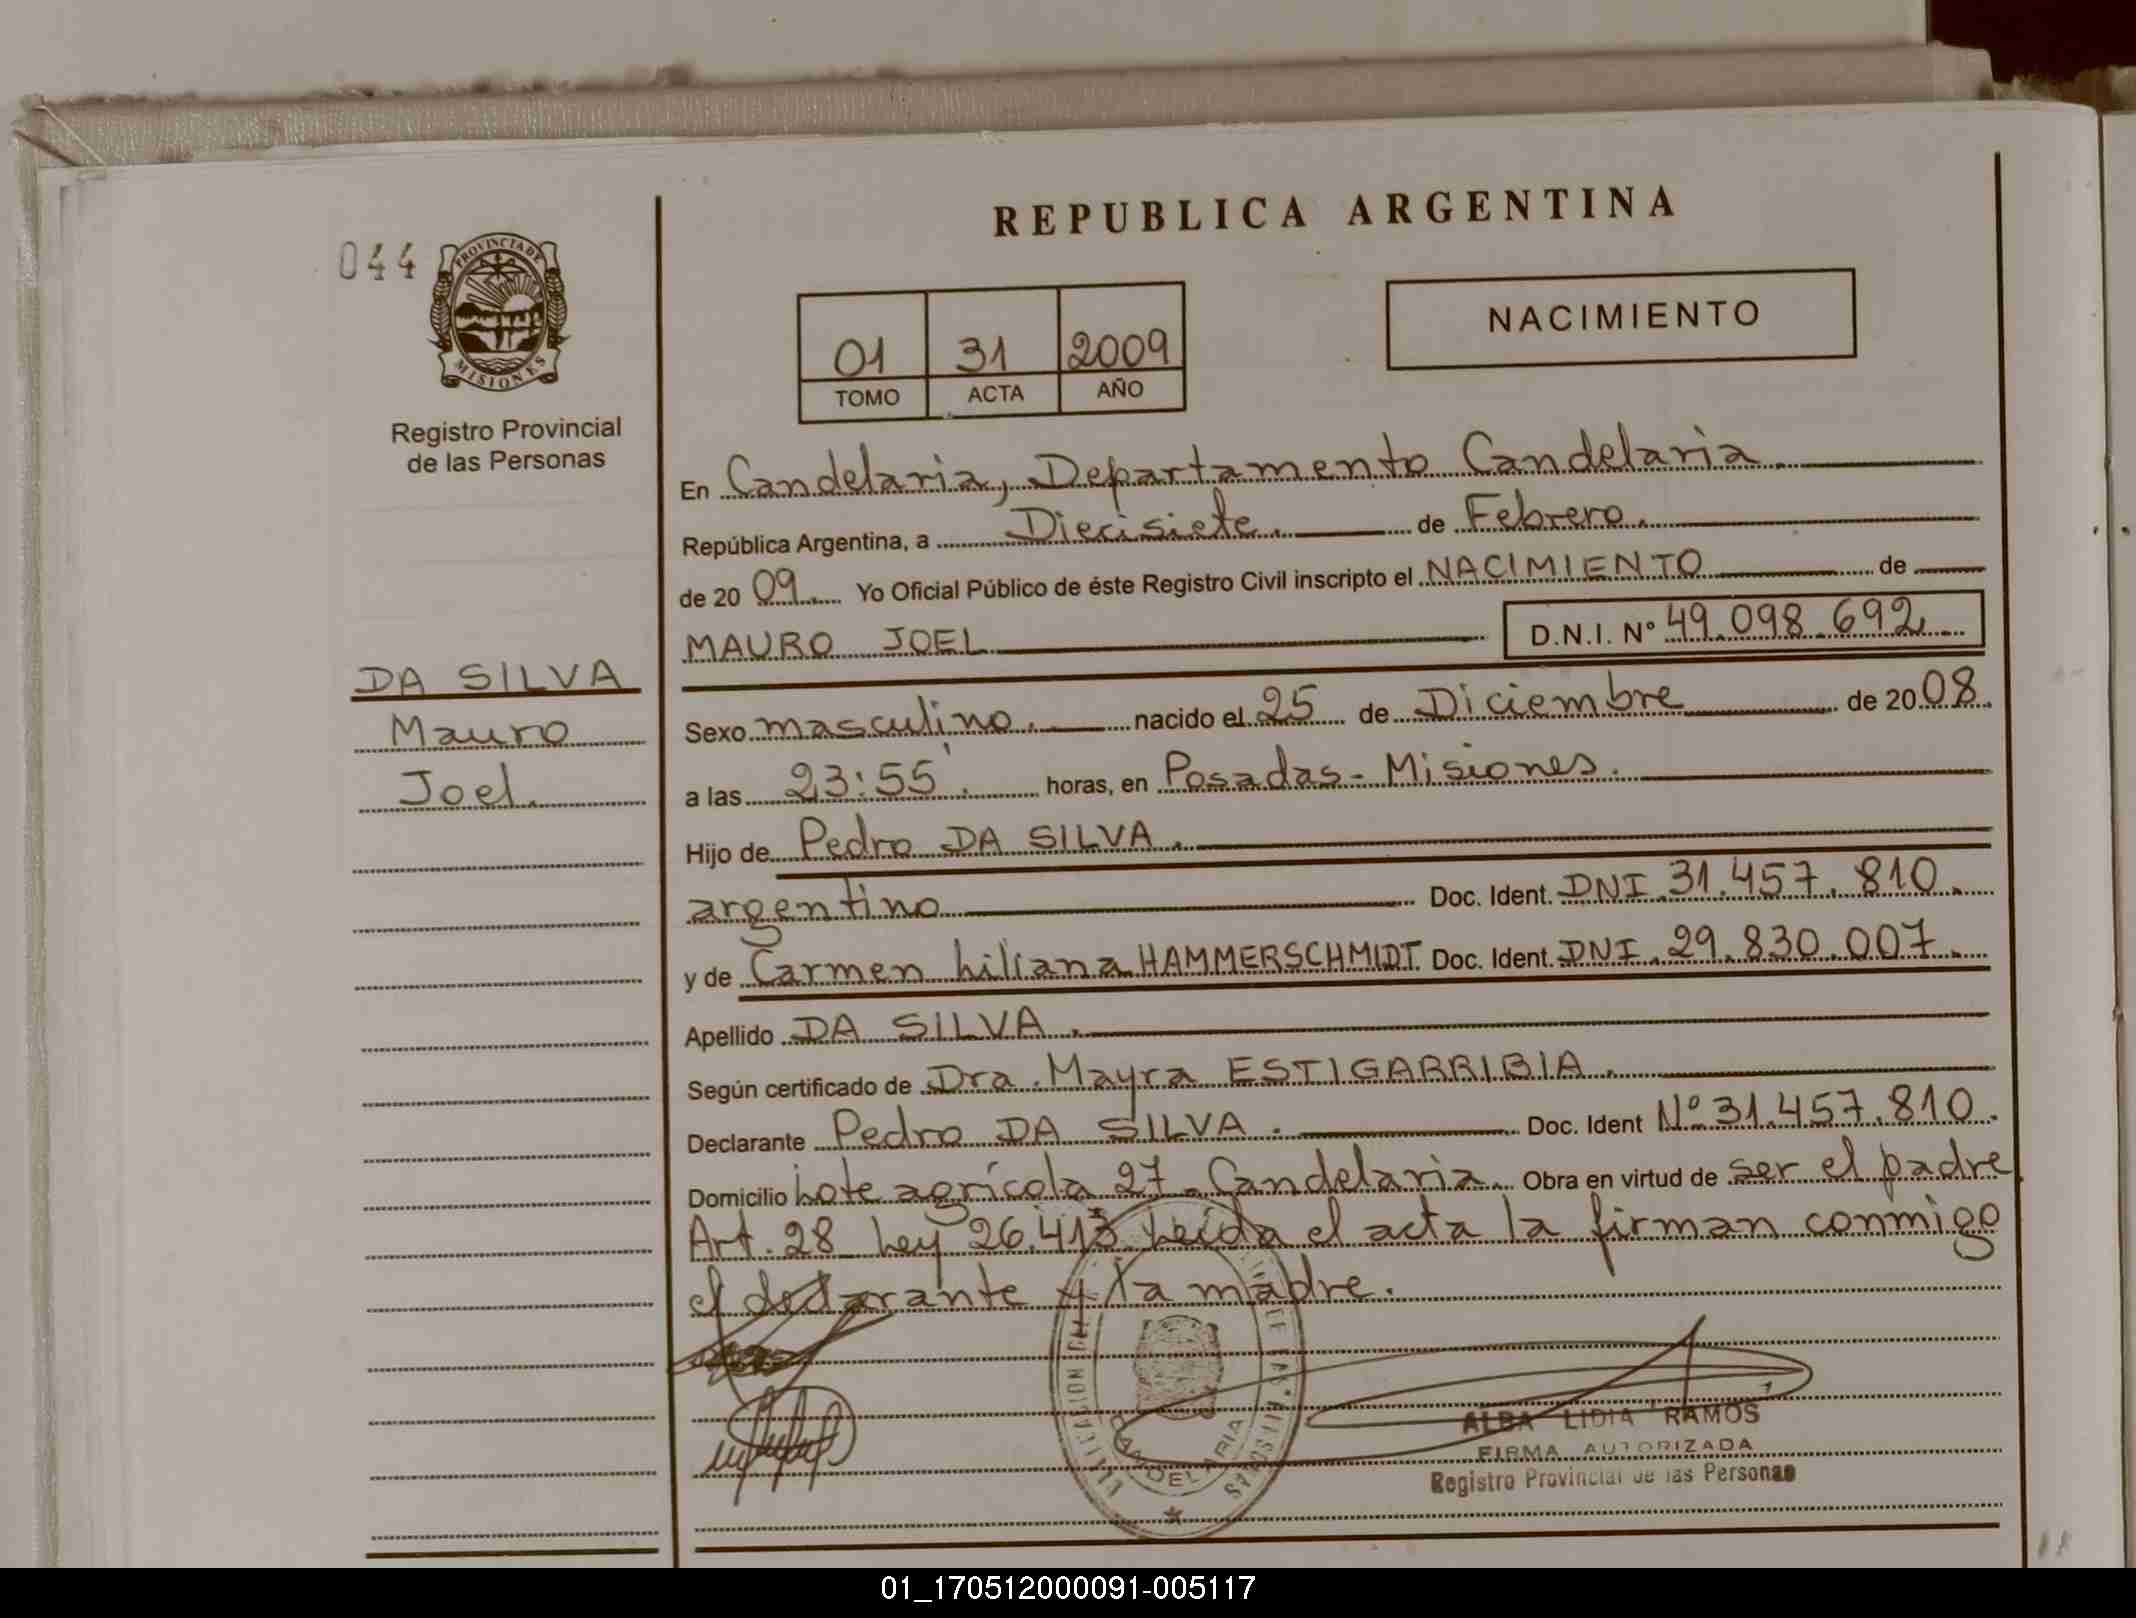 REPUBLICA ARGENTINA
044
PROVINCIA DE
MISIONES
Registro Provincial
de las Personas
01 31 2009
TOMO ACTA AÑO
NACIMIENTO
En Candelaria, Departamento Candelaria.
República Argentina, a Diecisiete. de Febrero.
de 20 09. Yo Oficial Público de éste Registro Civil inscripto el NACIMIENTO de
MAURO JOEL D.N.I. Nº 49.098.692
DA SILVA
Mauro
Joel.
Sexo masculino. nacido el 25 de Diciembre de 20 08.
a las 23:55'. horas, en Posadas - Misiones.
Hijo de Pedro DA SILVA.
argentino Doc. Ident. DNI 31.457.810.
y de Carmen Liliana HAMMERSCHMIDT Doc. Ident. DNI. 29.830.007.
Apellido DA SILVA.
Según certificado de Dra. Mayra ESTIGARRIBIA.
Declarante Pedro DA SILVA. Doc. Ident Nº 31.457.810.
Domicilio Lote agrícola 27 - Candelaria. Obra en virtud de ser el padre
Art. 28 Ley 26.413. Leída el acta la firman conmigo
el declarante y la madre.
CANDELARIA
ALBA LIDIA RAMOS
FIRMA AUTORIZADA
Registro Provincial de las Personas
01_170512000091-005117